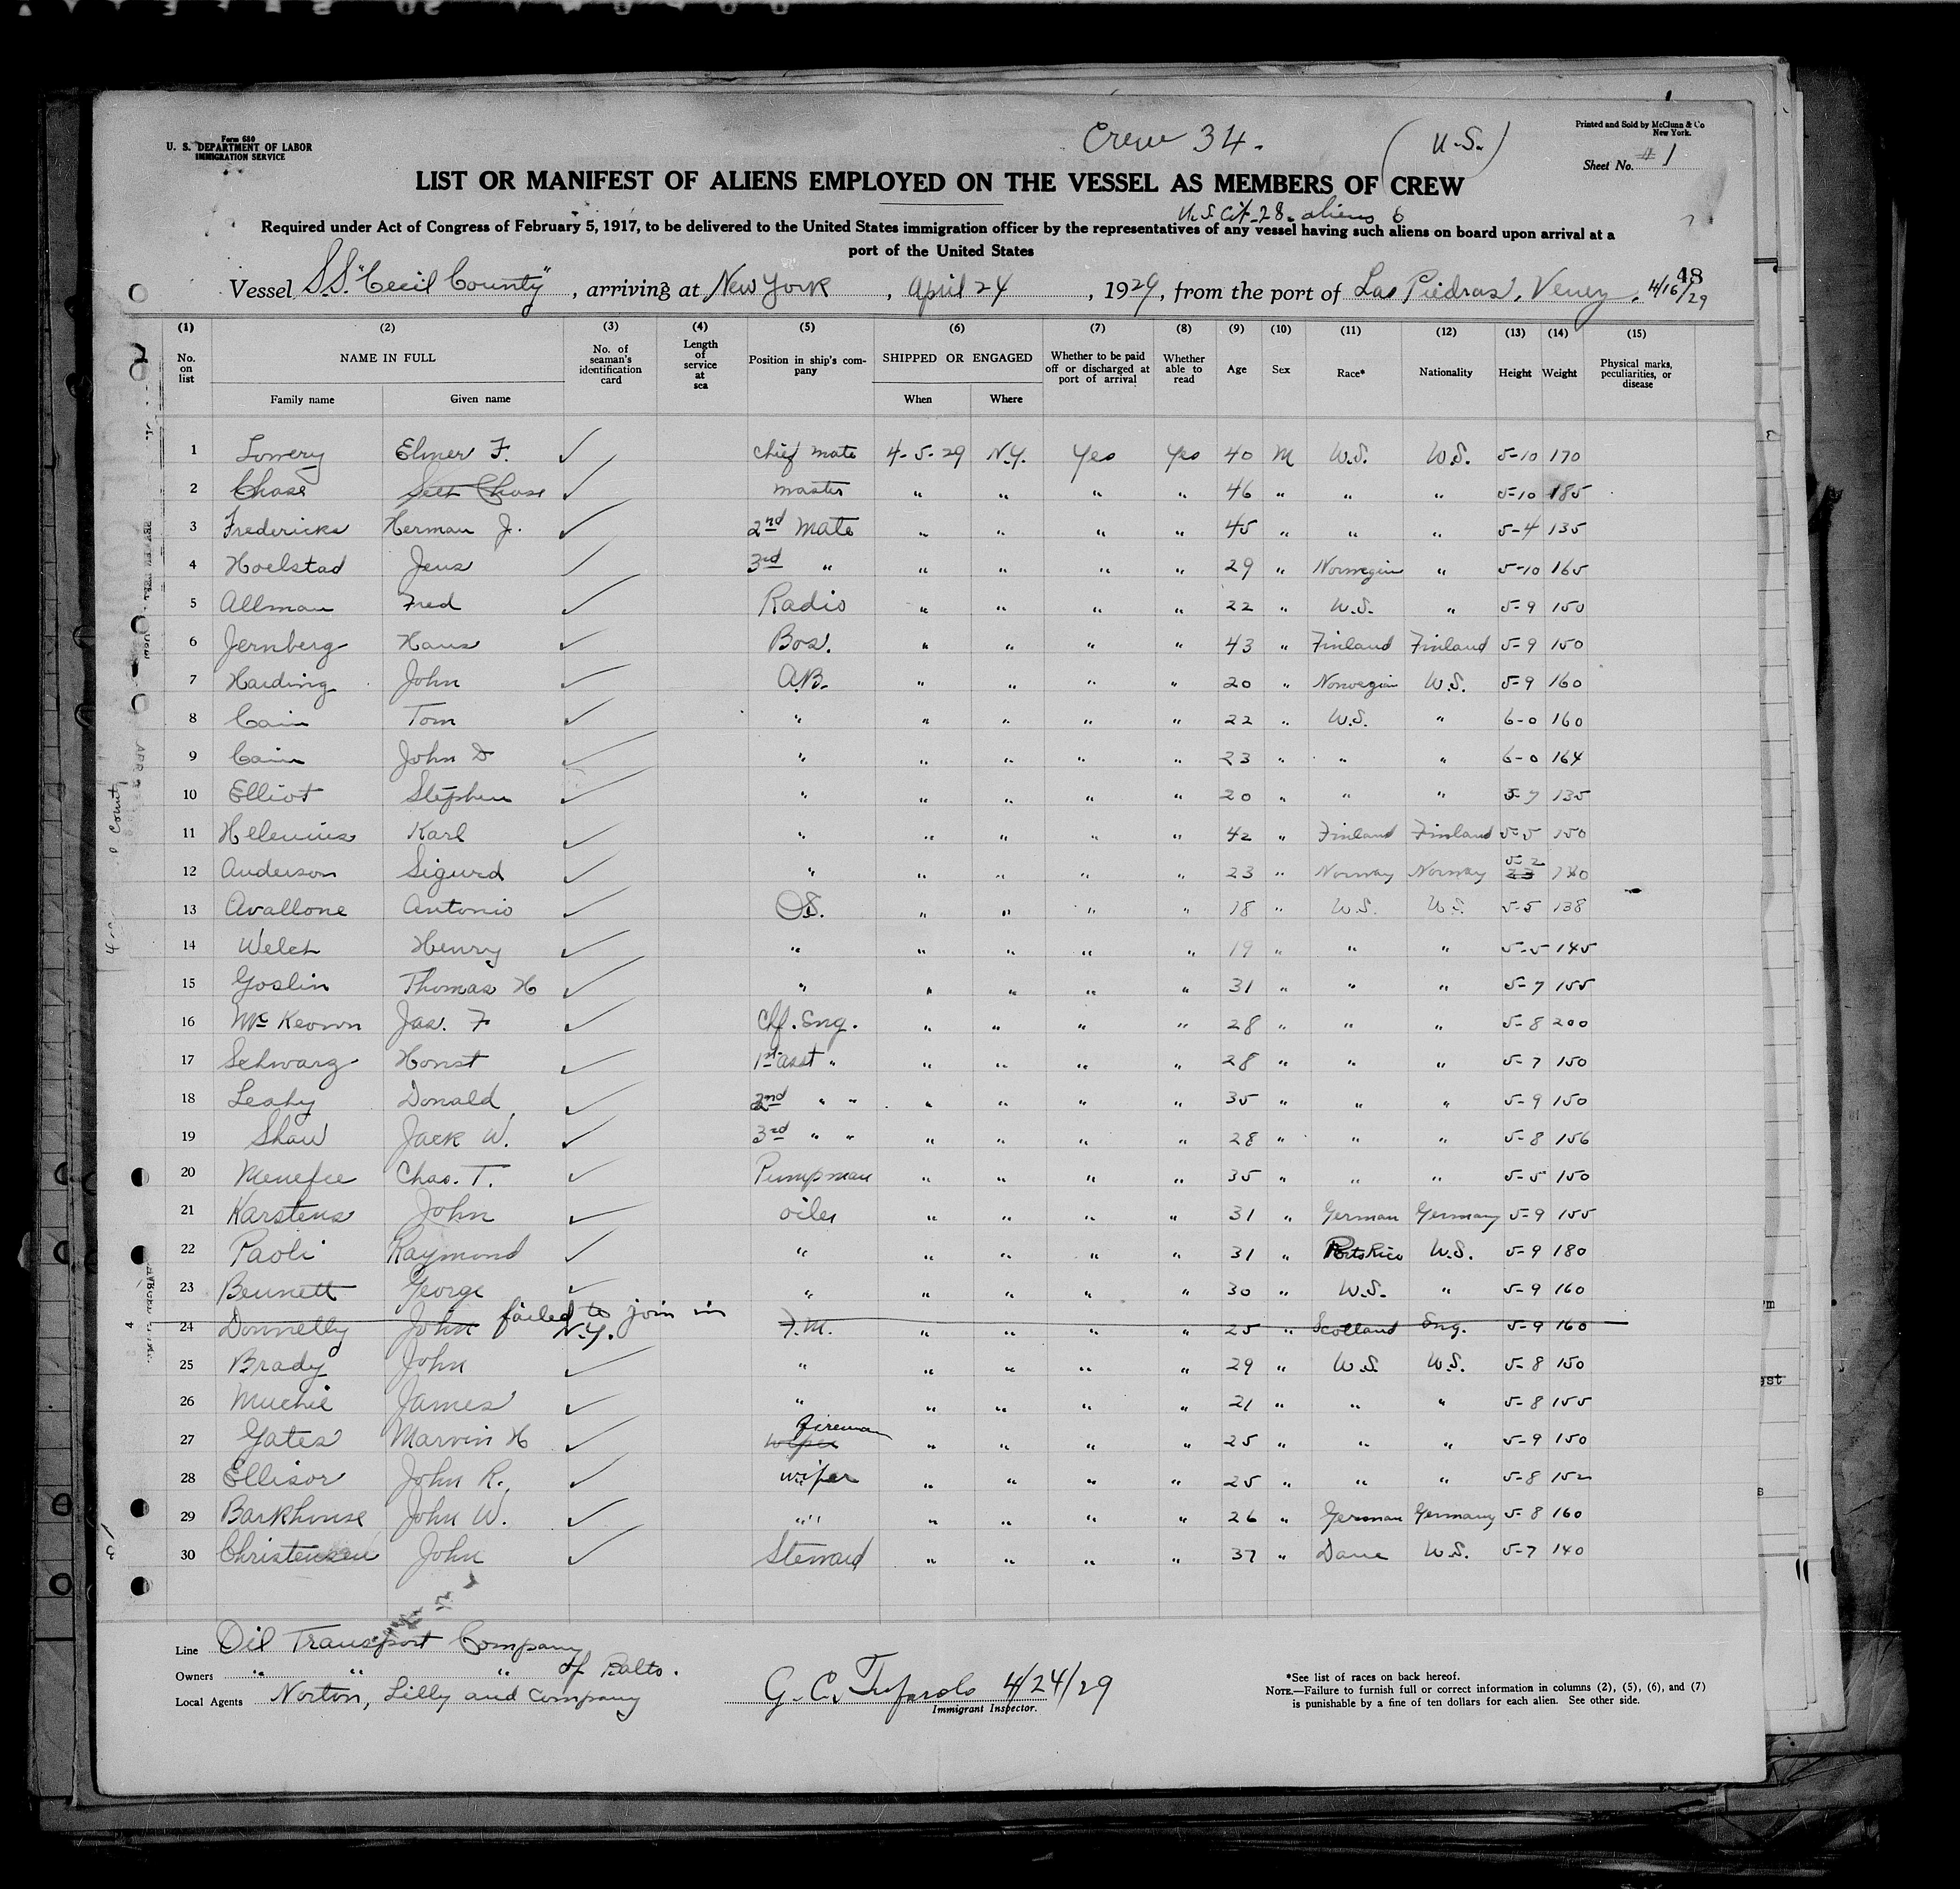 Form 680
U. S. DEPARTMENT OF LABOR
IMMIGRATION SERVICE
Crew 34. (U.S.)
Printed and Sold by McClunn & Co
New York.
Sheet No. #1
LIST OR MANIFEST OF ALIENS EMPLOYED ON THE VESSEL AS MEMBERS OF CREW
U.S. Cit-28. aliens 6
Required under Act of Congress of February 5, 1917, to be delivered to the United States immigration officer by the representatives of any vessel having such aliens on board upon arrival at a
port of the United States
48
Vessel S.S. "Cecil County", arriving at New York, April 24, 1929, from the port of Las Piedras, Venez. 4/16/29
(1) (2) (3) (4) (5) (6) (7) (8) (9) (10) (11) (12) (13) (14) (15)
No. on list NAME IN FULL Family name Given name No. of seaman's identification card Length of service at sea Position in ship's company SHIPPED OR ENGAGED When Where Whether to be paid off or discharged at port of arrival Whether able to read Age Sex Race* Nationality Height Weight Physical marks, peculiarities, or disease
1 Lowery Elmer F. ✓ Chief mate 4-5-29 N.Y. Yes Yes 40 M U.S. U.S. 5-10 170
2 Chase Seth Chase ✓ master " " " " 46 " " " 5-10 185
3 Fredericks Herman J. ✓ 2nd mate " " " " 45 " " " 5-4 135
4 Hoelstad Jens ✓ 3rd " " " " " 29 " Norwegin " 5-10 165
5 Allman Fred ✓ Radio " " " " 22 " U.S. " 5-9 150
6 Jernberg Hans ✓ Bos. " " " " 43 " Finland Finland 5-9 150
7 Harding John ✓ A.B. " " " " 20 " Norwegian U.S. 5-9 160
8 Cain Tom ✓ " " " " " 22 " U.S. " 6-0 160
9 Cain John D ✓ " " " " " 23 " " " 6-0 164
10 Elliot Stephen ✓ " " " " " 20 " " " 5-7 135
11 Helenius Karl ✓ " " " " " 42 " Finland Finland 5-5 150
12 Anderson Sigurd ✓ " " " " " 23 " Norway Norway 5-2
13 Avallone Antonio ✓ O.S. " " " " 18 " U.S. U.S. 5-5 138
14 Welch Henry ✓ " " " " " 19 " " " 5-5 145
15 Goslin Thomas H ✓ " " " " " 31 " " " 5-7 155
16 McKeown Jas. F ✓ Chf. Eng. " " " " 28 " " " 5-8 200
17 Schwarz Horst ✓ 1st asst " " " " " 28 " " " 5-7 150
18 Leahy Donald ✓ 2nd " " " " " " 35 " " " 5-9 150
19 Shaw Jack W. ✓ 3rd " " " " " " 28 " " " 5-8 156
20 Menefee Chas. T. ✓ Pumpman " " " " 35 " " " 5-5 150
21 Karstens John ✓ oiler " " " " 31 " German Germany 5-9 155
22 Paoli Raymond ✓ " " " " " 31 " Porto Rico U.S. 5-9 180
23 Bennett George ✓ " " " " " 30 " U.S. " 5-9 160
24 Donnelly John failed to join in N.Y. F.M. " " " " 25 " Scotland Eng. 5-9 160
25 Brady John ✓ " " " " " 29 " U.S. U.S. 5-8 150
26 Muchie James ✓ " " " " " 21 " " " 5-8 155
27 Gates Marvin H ✓ wiper fireman " " " " 25 " " " 5-9 150
28 Ellisor John R. ✓ wiper " " " " 25 " " " 5-8 152
29 Barkhouse John W. ✓ " " " " " 26 " German Germany 5-8 160
30 Christensen John ✓ Steward " " " " 37 " Dane U.S. 5-7 140
Line Oil Transport Company
Owners " " " of Balto.
Local Agents Norton, Lilly and Company
G. C. Tufarolo 4/24/29
Immigrant Inspector.
*See list of races on back hereof.
NOTE.—Failure to furnish full or correct information in columns (2), (5), (6), and (7)
is punishable by a fine of ten dollars for each alien. See other side.